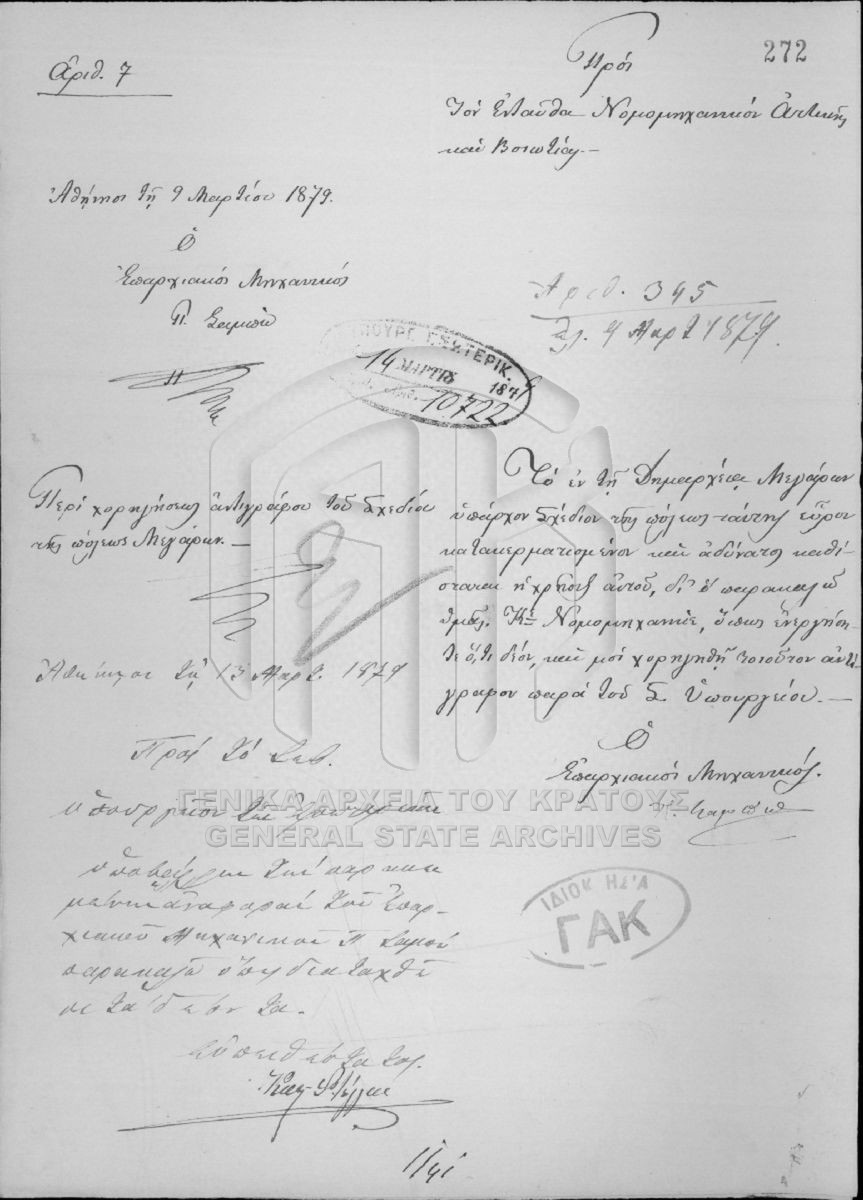 272
Ἀριθ. 7
Πρὸς
Τὸν Ἐνταῦθα Νομομηχανικὸν Ἀττικῆς
καὶ Βοιωτίας.—
Ἀθήνησι τῇ 9 Μαρτίου 1879.
Ὁ
Ἐπαρχιακὸς Μηχανικὸς
Π.
Ἀριθ. 395
9 Μαρτ 1879.
ΥΠΟΥΡΓ. ΕΣΩΤΕΡΙΚ.
14 ΜΑΡΤΙΣ 187
10722
Περὶ χορηγήσεως ἀντιγράφου τοῦ Σχεδίου
τῆς πόλεως Μεγάρων.—
Τὸ ἐν τῇ Δημαρχείᾳ Μεγάρων
ὑπάρχον Σχέδιον τῆς πόλεως ταύτης εὗρον
κατακερματισμένον καὶ ἀδύνατος καθί-
σταται ἡ χρῆσις αὐτοῦ, δι' ὃ παρακαλῶ
ὑμᾶς, Κε Νομομηχανικέ, ὅπως ἐνεργήση-
τε ὅ,τι δέον, καὶ μοὶ χορηγηθῇ τοιοῦτον ἀντί-
γραφον παρὰ τοῦ Σ. Ὑπουργείου.—
Ὁ
Ἐπαρχιακὸς Μηχανικός.
Ἀθήνησι τῇ 13 Μαρτ. 1879
Πρὸς τὸ Σεβ.
ὑπουργεῖον τῶν Ἐσωτερικῶν
τὴν
ἀναφορὰν τοῦ Ἐπαρ-
χιακοῦ Μηχανικοῦ Π.
παρακαλῶ ὅπως διαταχθῶ
τὰ δέοντα.
Εὐπειθέστατος
ΓΕΝΙΚΑ ΑΡΧΕΙΑ ΤΟΥ ΚΡΑΤΟΥΣ
GENERAL STATE ARCHIVES
ΙΔΙΟΚ ΗΣΊΑ
ΓΑΚ